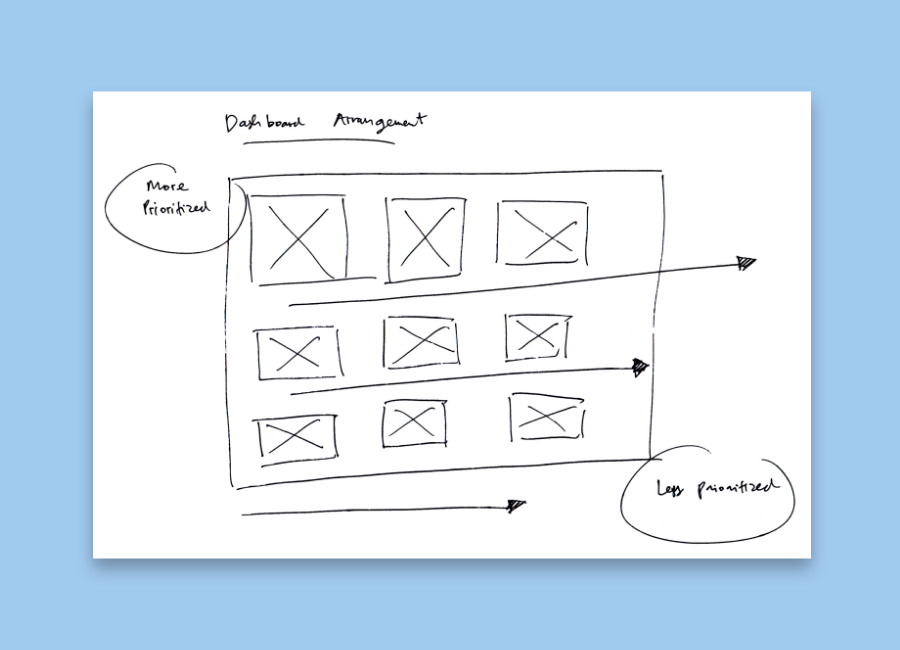 Dashboard Arrangement
More
Prioritized
Less prioritized